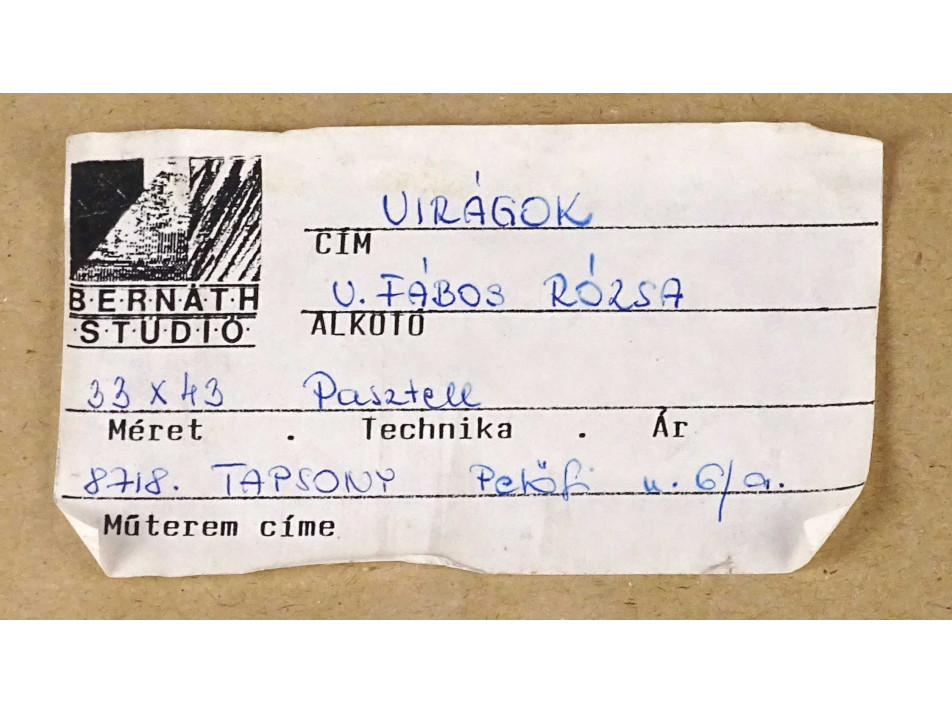 VIRÁGOK
CÍM
B·E·R·N·Á·T·H
·S·T·Ú·D·I·Ó·
V. FÁBOS RÓZSA
ALKOTÓ
33 x 43 Pasztell
Méret . Technika . Ár
8718. TAPSONY Petőfi u. 6/a.
Műterem címe